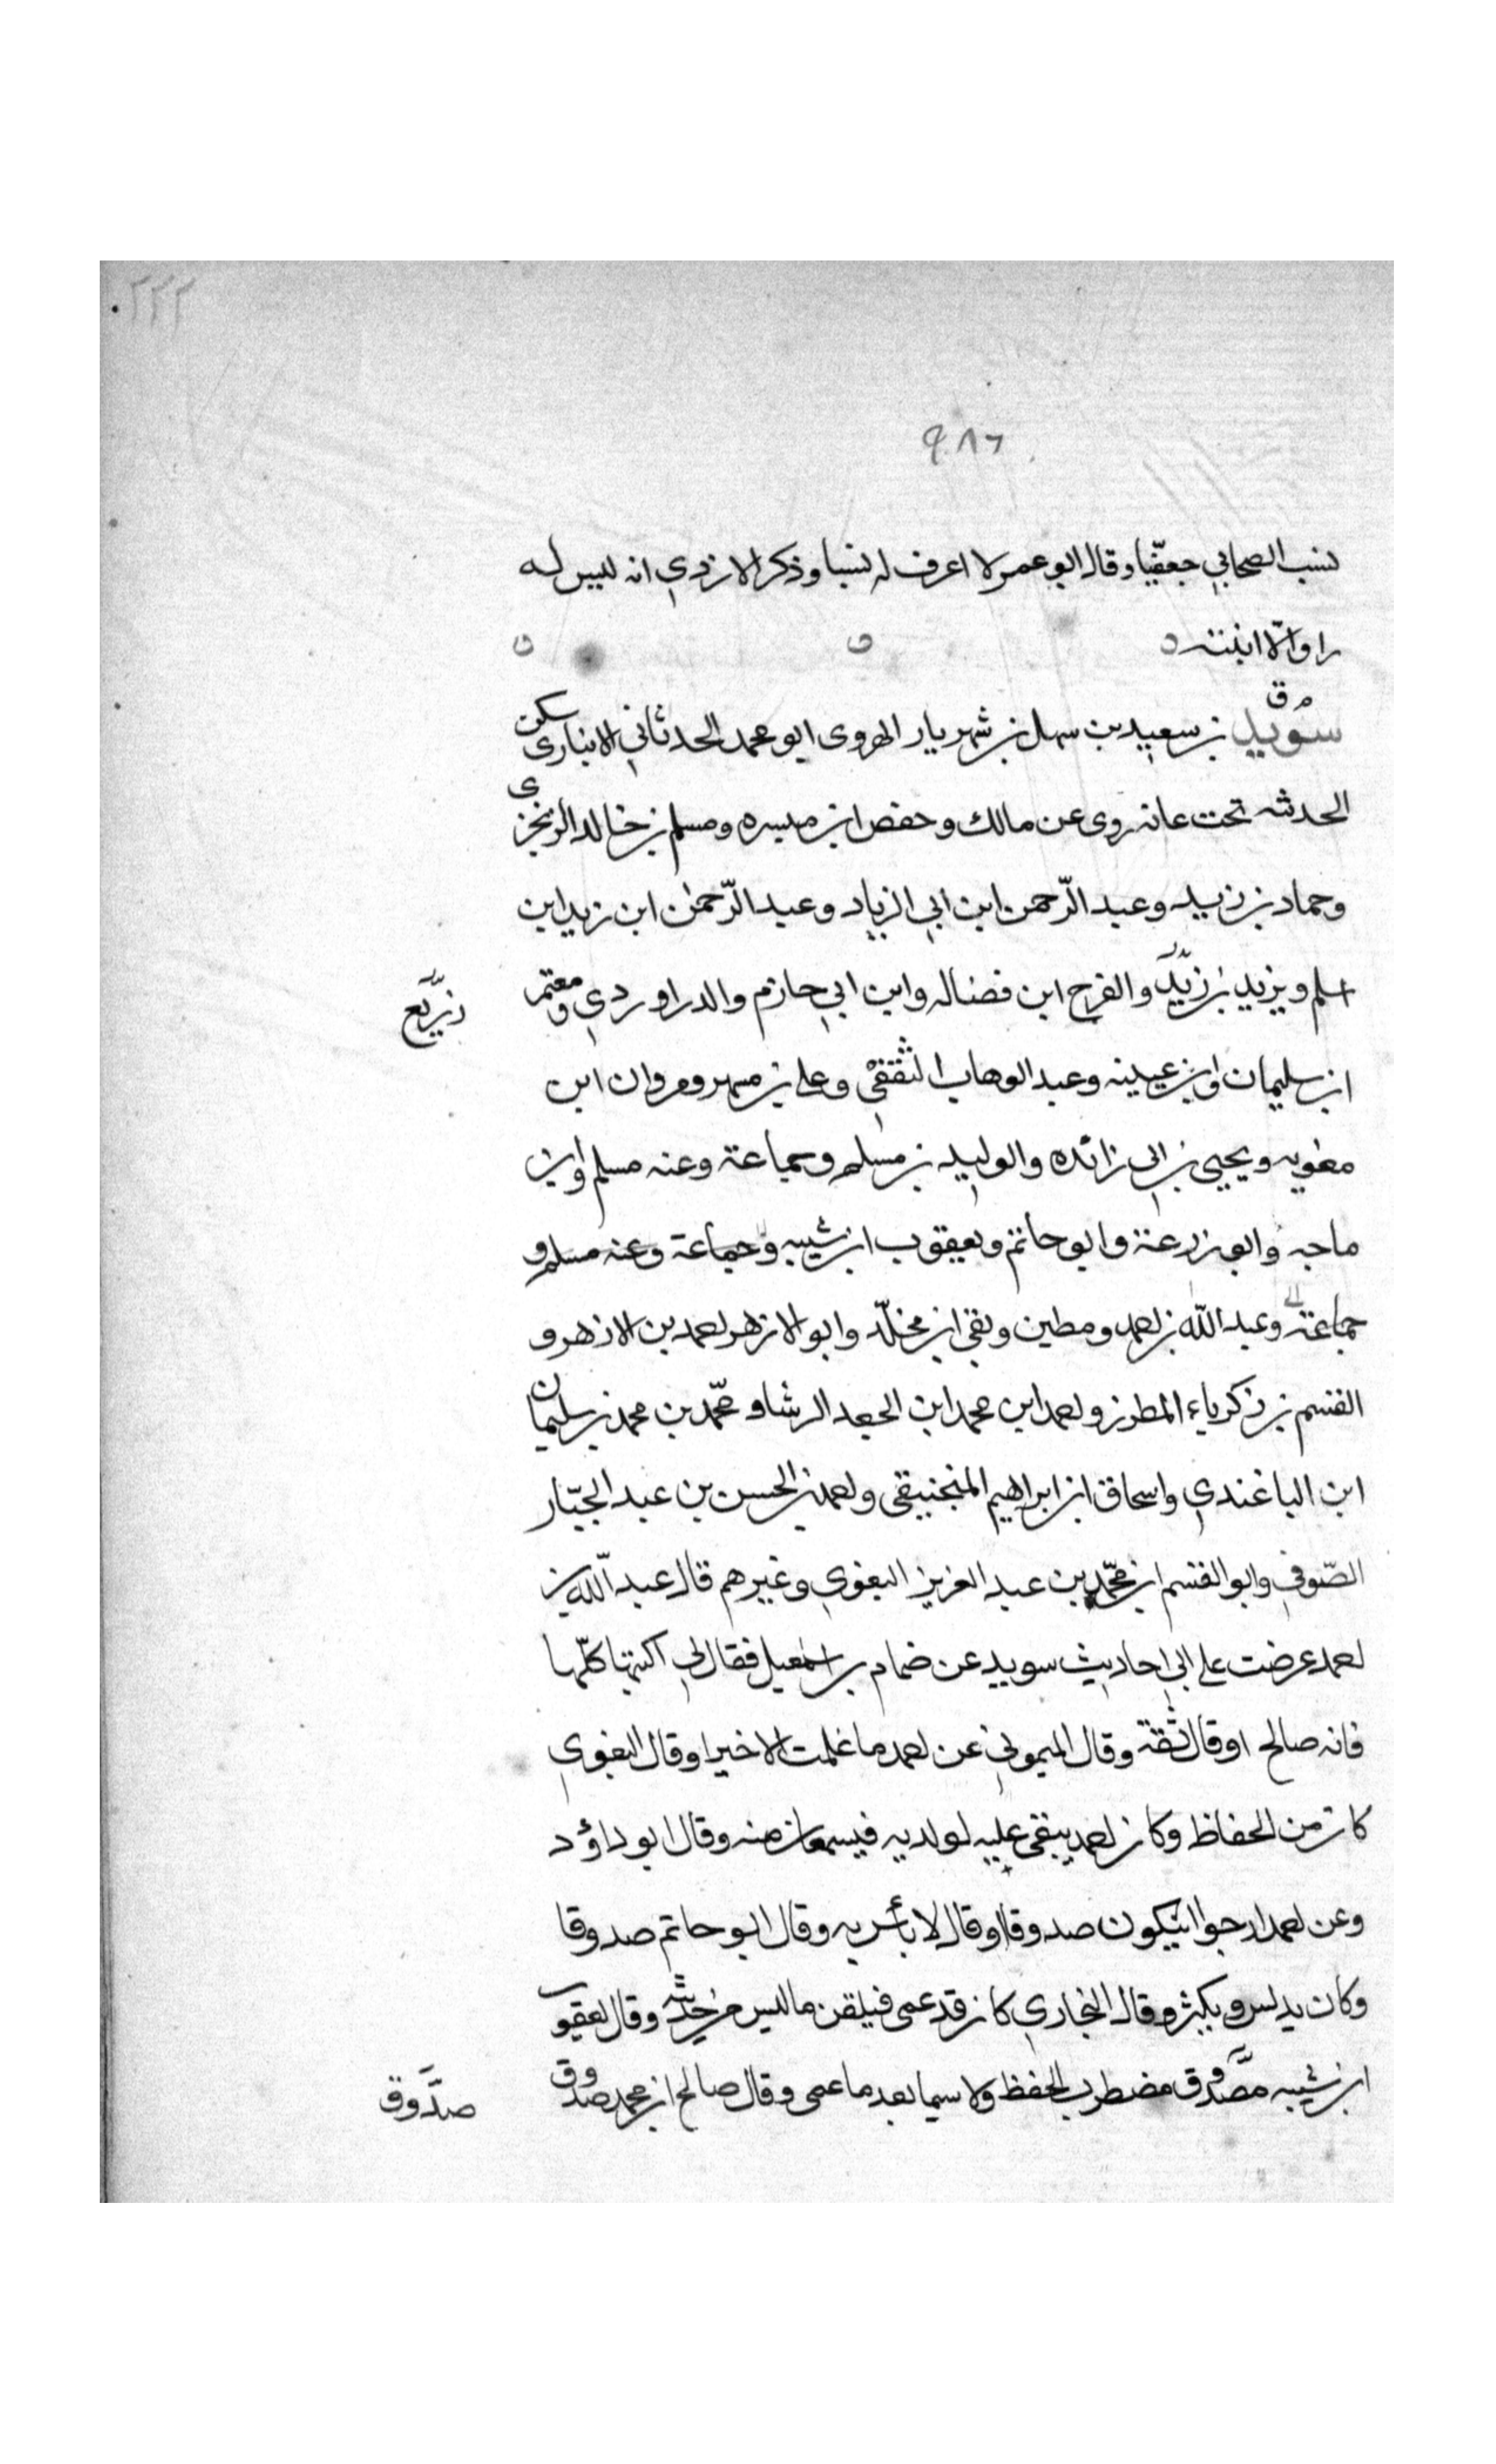 ٢٢٢
٩٨٦
نسب الصحابي جعفيا وقال ابو عمر لا اعرف له نسبا وذكر الازدي انه ليس له
راو الا ابنته
م ق
سويد بن سعيد بن سهل بن شهريار الهروى ابو محمد الحدثاني الانبارى سكن
الحدثه تحت عانه روى عن مالك وحفص ابن ميسره ومسلم بن خالد الزنجى
وحماد بن زيد وعبد الرّحمن ابن ابي الزناد وعبد الرّحمن ابن زيد ابن
اسلم ويزيد بن زيد والفرج ابن فضاله وابن ابي حازم والدراوردي ومعتمر
زريع
ابن سليمان وابن عيينه وعبد الوهاب الثقفي وعلى بن مسهر ومروان ابن
معويه ويحيى بن ابى زائده والوليد بن مسلم وجماعة وعنه مسلم وابن
ماجه وابو زرعة وابو حاتم ويعقوب ابن شيبه وجماعة وعنه مسلم و
جماعة وعبد الله بن احمد ومطين وبقى ابن مخلّد وابو الازهر احمد بن الازهر و
القسم بن زكرياء المطرز واحمد ابن محمد ابن الجعد الوشا ومحمّد بن محمد بن سليمان
ابن الباغندي واسحاق ابن ابراهيم المنجنيقى واحمد بن الحسن بن عبد الجبّار
الصّوفي وابو القسم ابن محمّد بن عبد العزيز البغوي وغيرهم قال عبد اللّه بن
احمد عرضت على ابي احاديث سويد عن ضمام بن اسمعيل فقال لي اكتبها كلّها
فانه صالح او قال ثقة وقال الميموني عن احمد ما علمت الا خيرا وقال البغوي
كان من الحفاظ وكان احمد ينتقى عليه لولديه فيسمعان منه وقال ابو داؤد
وعن احمد ارجوا ان يكون صدوقا او قال لا بأس به وقال ابو حاتم صدوقا
وكان يدلس ويكثر وقال البخاري كان قد عمى فيلقن ما ليس من حديثه وقال يعقوب
ابن شيبه مصدوق مضطرب الحفظ ولا سيما بعد ما عمى وقال صالح ابن محمد صدوق
صدّوق